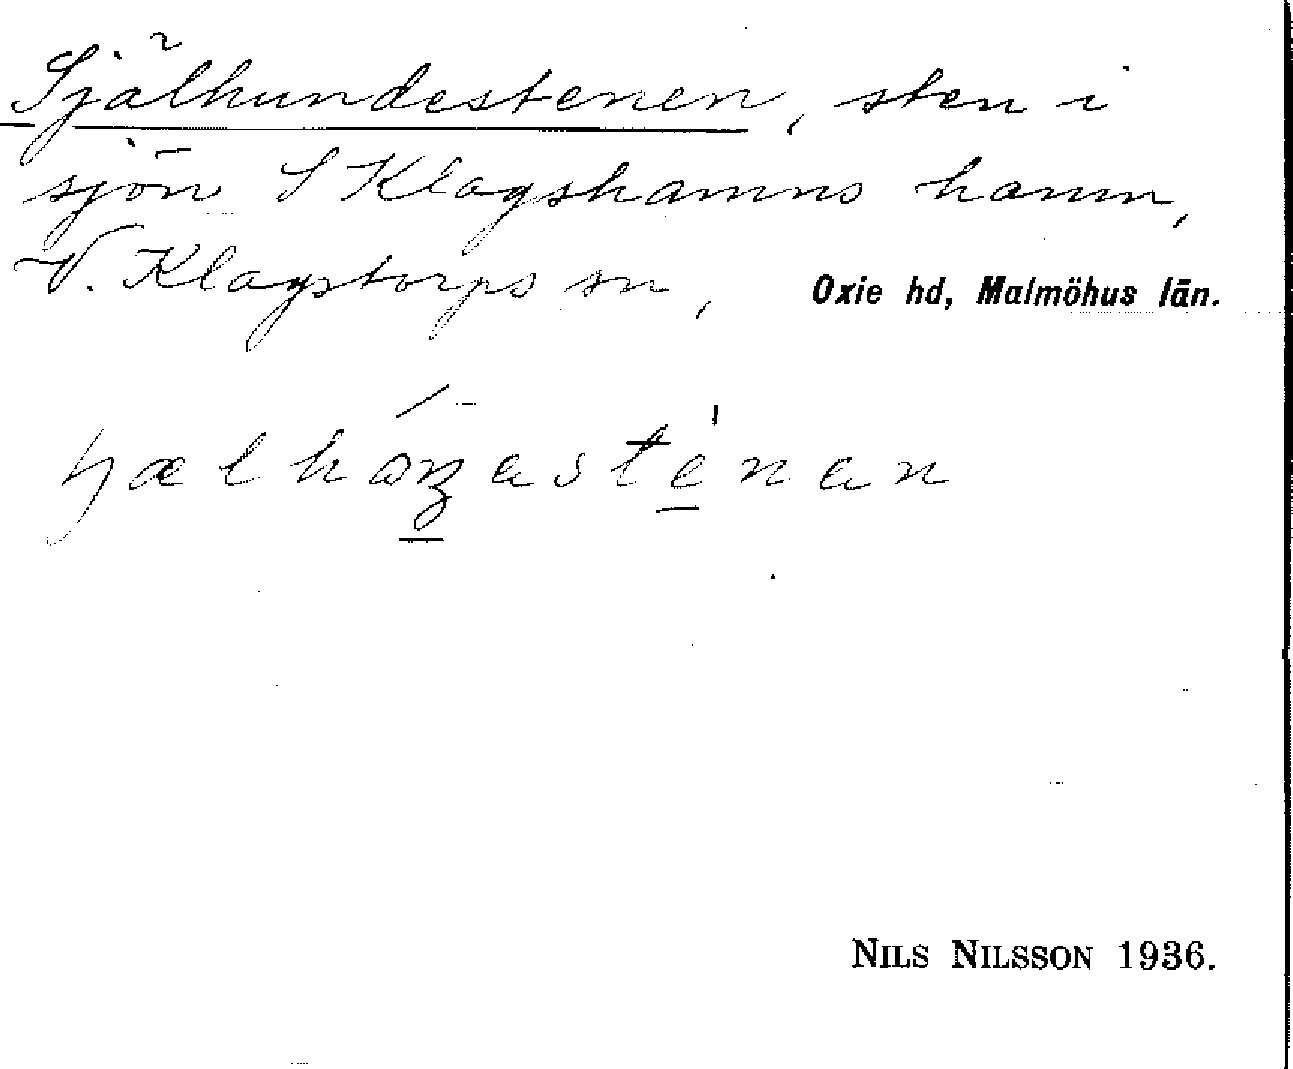 Själhundestenen, sten i
sjön S Klagshamns hamn,
V. Klagstorps sn, Oxie hd, Malmöhus län.
NILS NILSSON 1936.